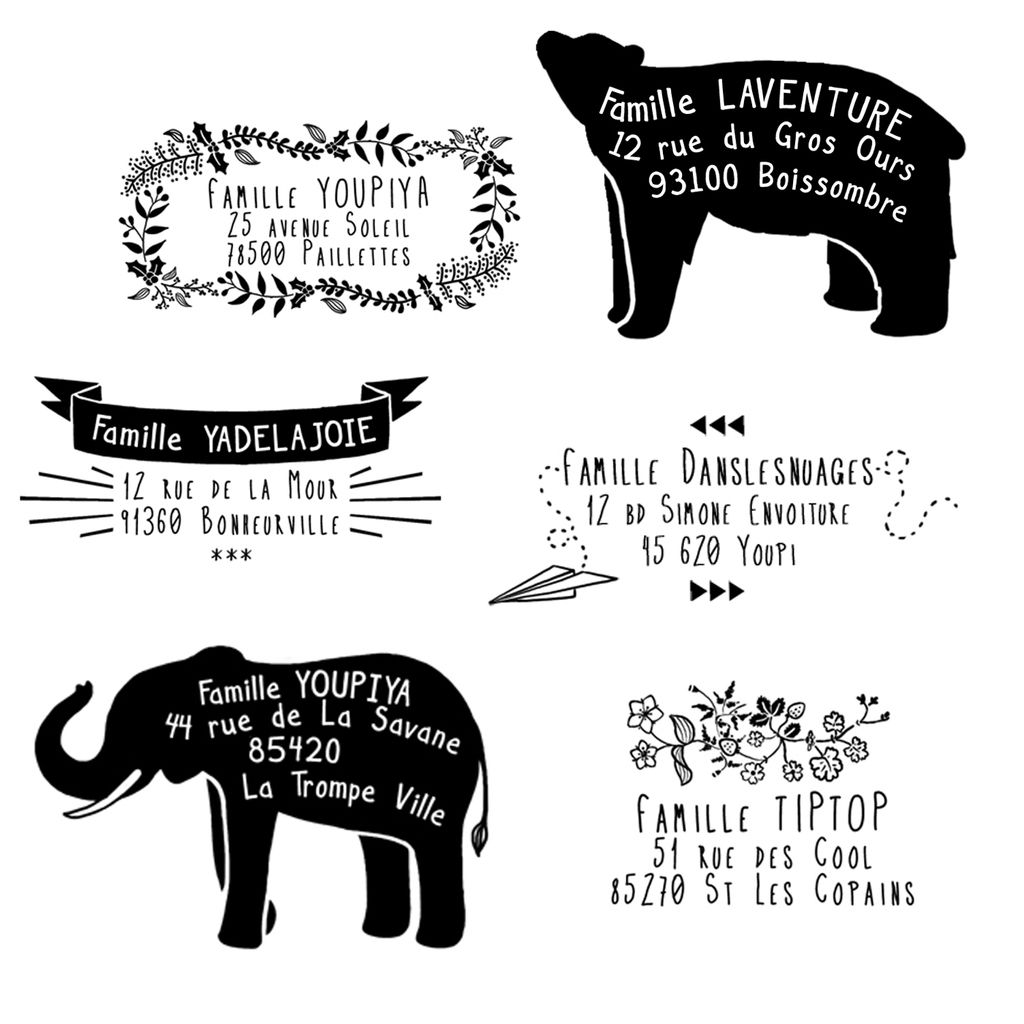 Famille YOUPIYA
25 avenue Soleil
78500 Paillettes
Famille LAVENTURE
12 rue du Gros Ours
93100 Boissombre
Famille YADELAJOIE
12 rue de la Mour
91360 Bonheurville
***
Famille Danslesnuages
12 bd Simone Envoiture
45 620 Youpi
Famille YOUPIYA
44 rue de La Savane
85420
La Trompe Ville
Famille TIPTOP
51 rue des Cool
85270 St Les Copains